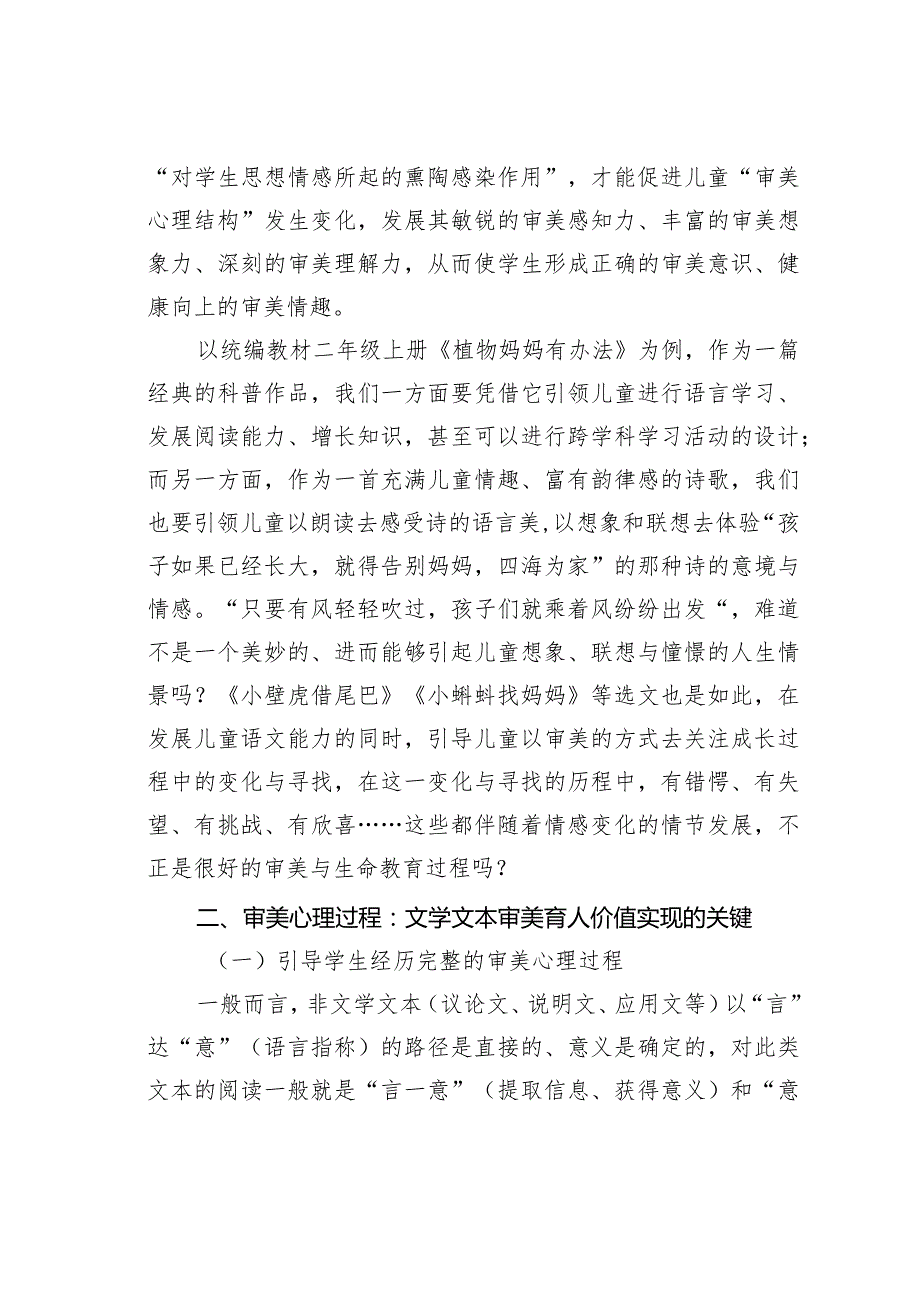 “对学生思想情感所起的熏陶感染作用”，才能促进儿童“审美
心理结构”发生变化，发展其敏锐的审美感知力、丰富的审美想
象力、深刻的审美理解力，从而使学生形成正确的审美意识、健
康向上的审美情趣。
以统编教材二年级上册《植物妈妈有办法》为例，作为一篇
经典的科普作品，我们一方面要凭借它引领儿童进行语言学习、
发展阅读能力、增长知识，甚至可以进行跨学科学习活动的设计；
而另一方面，作为一首充满儿童情趣、富有韵律感的诗歌，我们
也要引领儿童以朗读去感受诗的语言美,以想象和联想去体验“孩
子如果已经长大，就得告别妈妈，四海为家”的那种诗的意境与
情感。“只要有风轻轻吹过，孩子们就乘着风纷纷出发“，难道
不是一个美妙的、进而能够引起儿童想象、联想与憧憬的人生情
景吗？《小壁虎借尾巴》《小蝌蚪找妈妈》等选文也是如此，在
发展儿童语文能力的同时，引导儿童以审美的方式去关注成长过
程中的变化与寻找，在这一变化与寻找的历程中，有错愕、有失
望、有挑战、有欣喜……这些都伴随着情感变化的情节发展，不
正是很好的审美与生命教育过程吗？
二、审美心理过程：文学文本审美育人价值实现的关键
（一）引导学生经历完整的审美心理过程
一般而言，非文学文本（议论文、说明文、应用文等）以“言”
达“意”（语言指称）的路径是直接的、意义是确定的，对此类
文本的阅读一般就是“言一意”（提取信息、获得意义）和“意